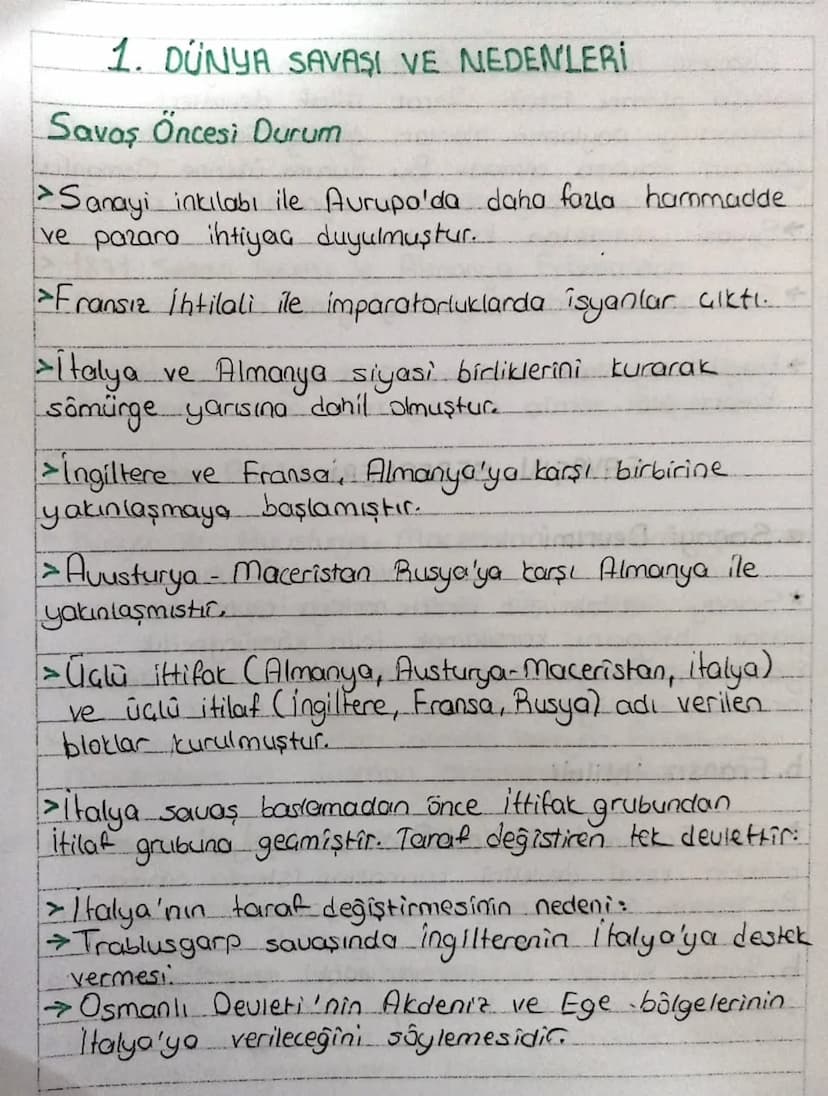 1. DÜNYA SAVAŞI VE NEDENLERİ
Savaş Öncesi Durum
>Sanayi inkılabı ile Avrupa'da daha fazla hammadde
ve pazara ihtiyaç duyulmuştur.
>Fransız İhtilali ile imparatorluklarda isyanlar çıktı.
>İtalya ve Almanya siyasi birliklerini kurarak
sömürge yarısına dahil olmuştur.
>İngiltere ve Fransa, Almanya'ya karşı birbirine
yakınlaşmaya başlamıştır.
>Avusturya - Maceristan Rusya'ya karşı Almanya ile
yakınlaşmıstır.
>Üçlü ittifak (Almanya, Austurya-Maceristan, italya)
ve üçlü itilaf (ingiltere, Fransa, Rusya) adı verilen
bloklar kurulmuştur.
>İtalya savaş baslamadan önce ittifak grubundan
itilaf grubuna geçmiştir. Taraf değistiren tek devlettir.
>İtalya'nın taraf değiştirmesinin nedeni:
→Trablusgarp savaşında ingilterenin İtalya'ya destek
vermesi.
→Osmanlı Devleti'nin Akdeniz ve Ege bölgelerinin
İtalya'ya verileceğini söylemesidir.